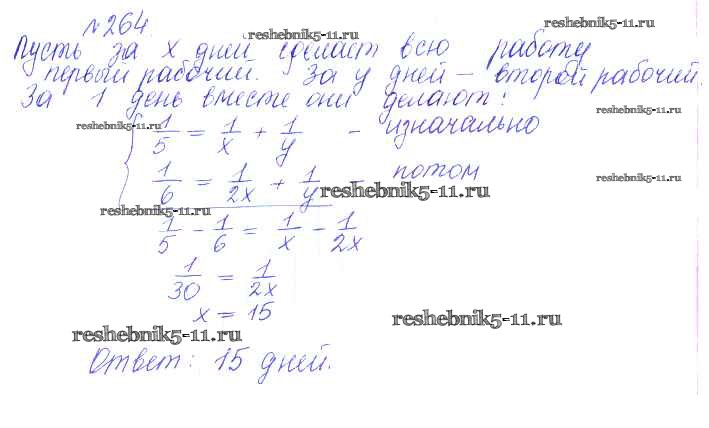 №264
reshebnik5-11.ru
reshebnik5-11.ru
Пусть за x дней сделает всю работу
первый рабочий. За y дней – второй рабочий.
За 1 день вместе они делают:
reshebnik5-11.ru
reshebnik5-11.ru
1/5 = 1/x + 1/y – изначально
1/6 = 1/2x + 1/y – потом
reshebnik5-11.ru
reshebnik5-11.ru
reshebnik5-11.ru
1/5 - 1/6 = 1/x - 1/2x
1/30 = 1/2x
x = 15
reshebnik5-11.ru
reshebnik5-11.ru
Ответ: 15 дней.